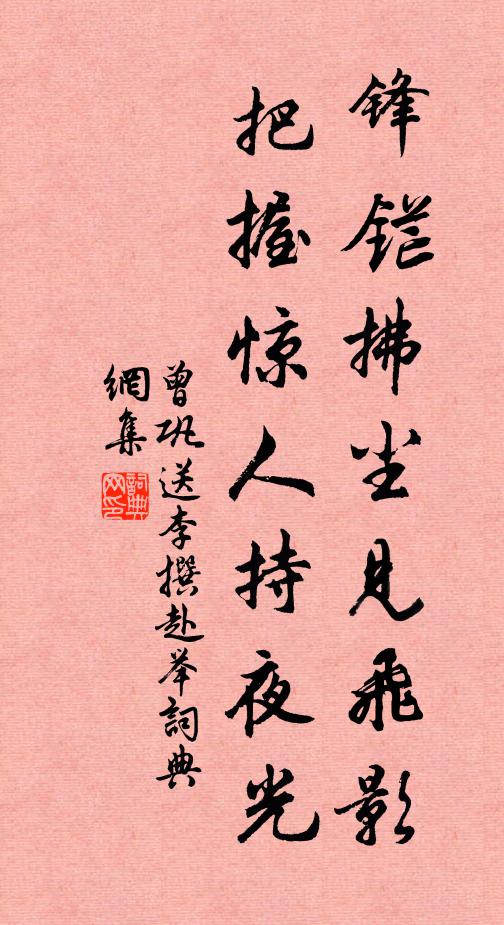 锋铓拂尘见飞影
把握惊人持夜光
曾巩送李撰赴举詞典
網集
詞典
网印